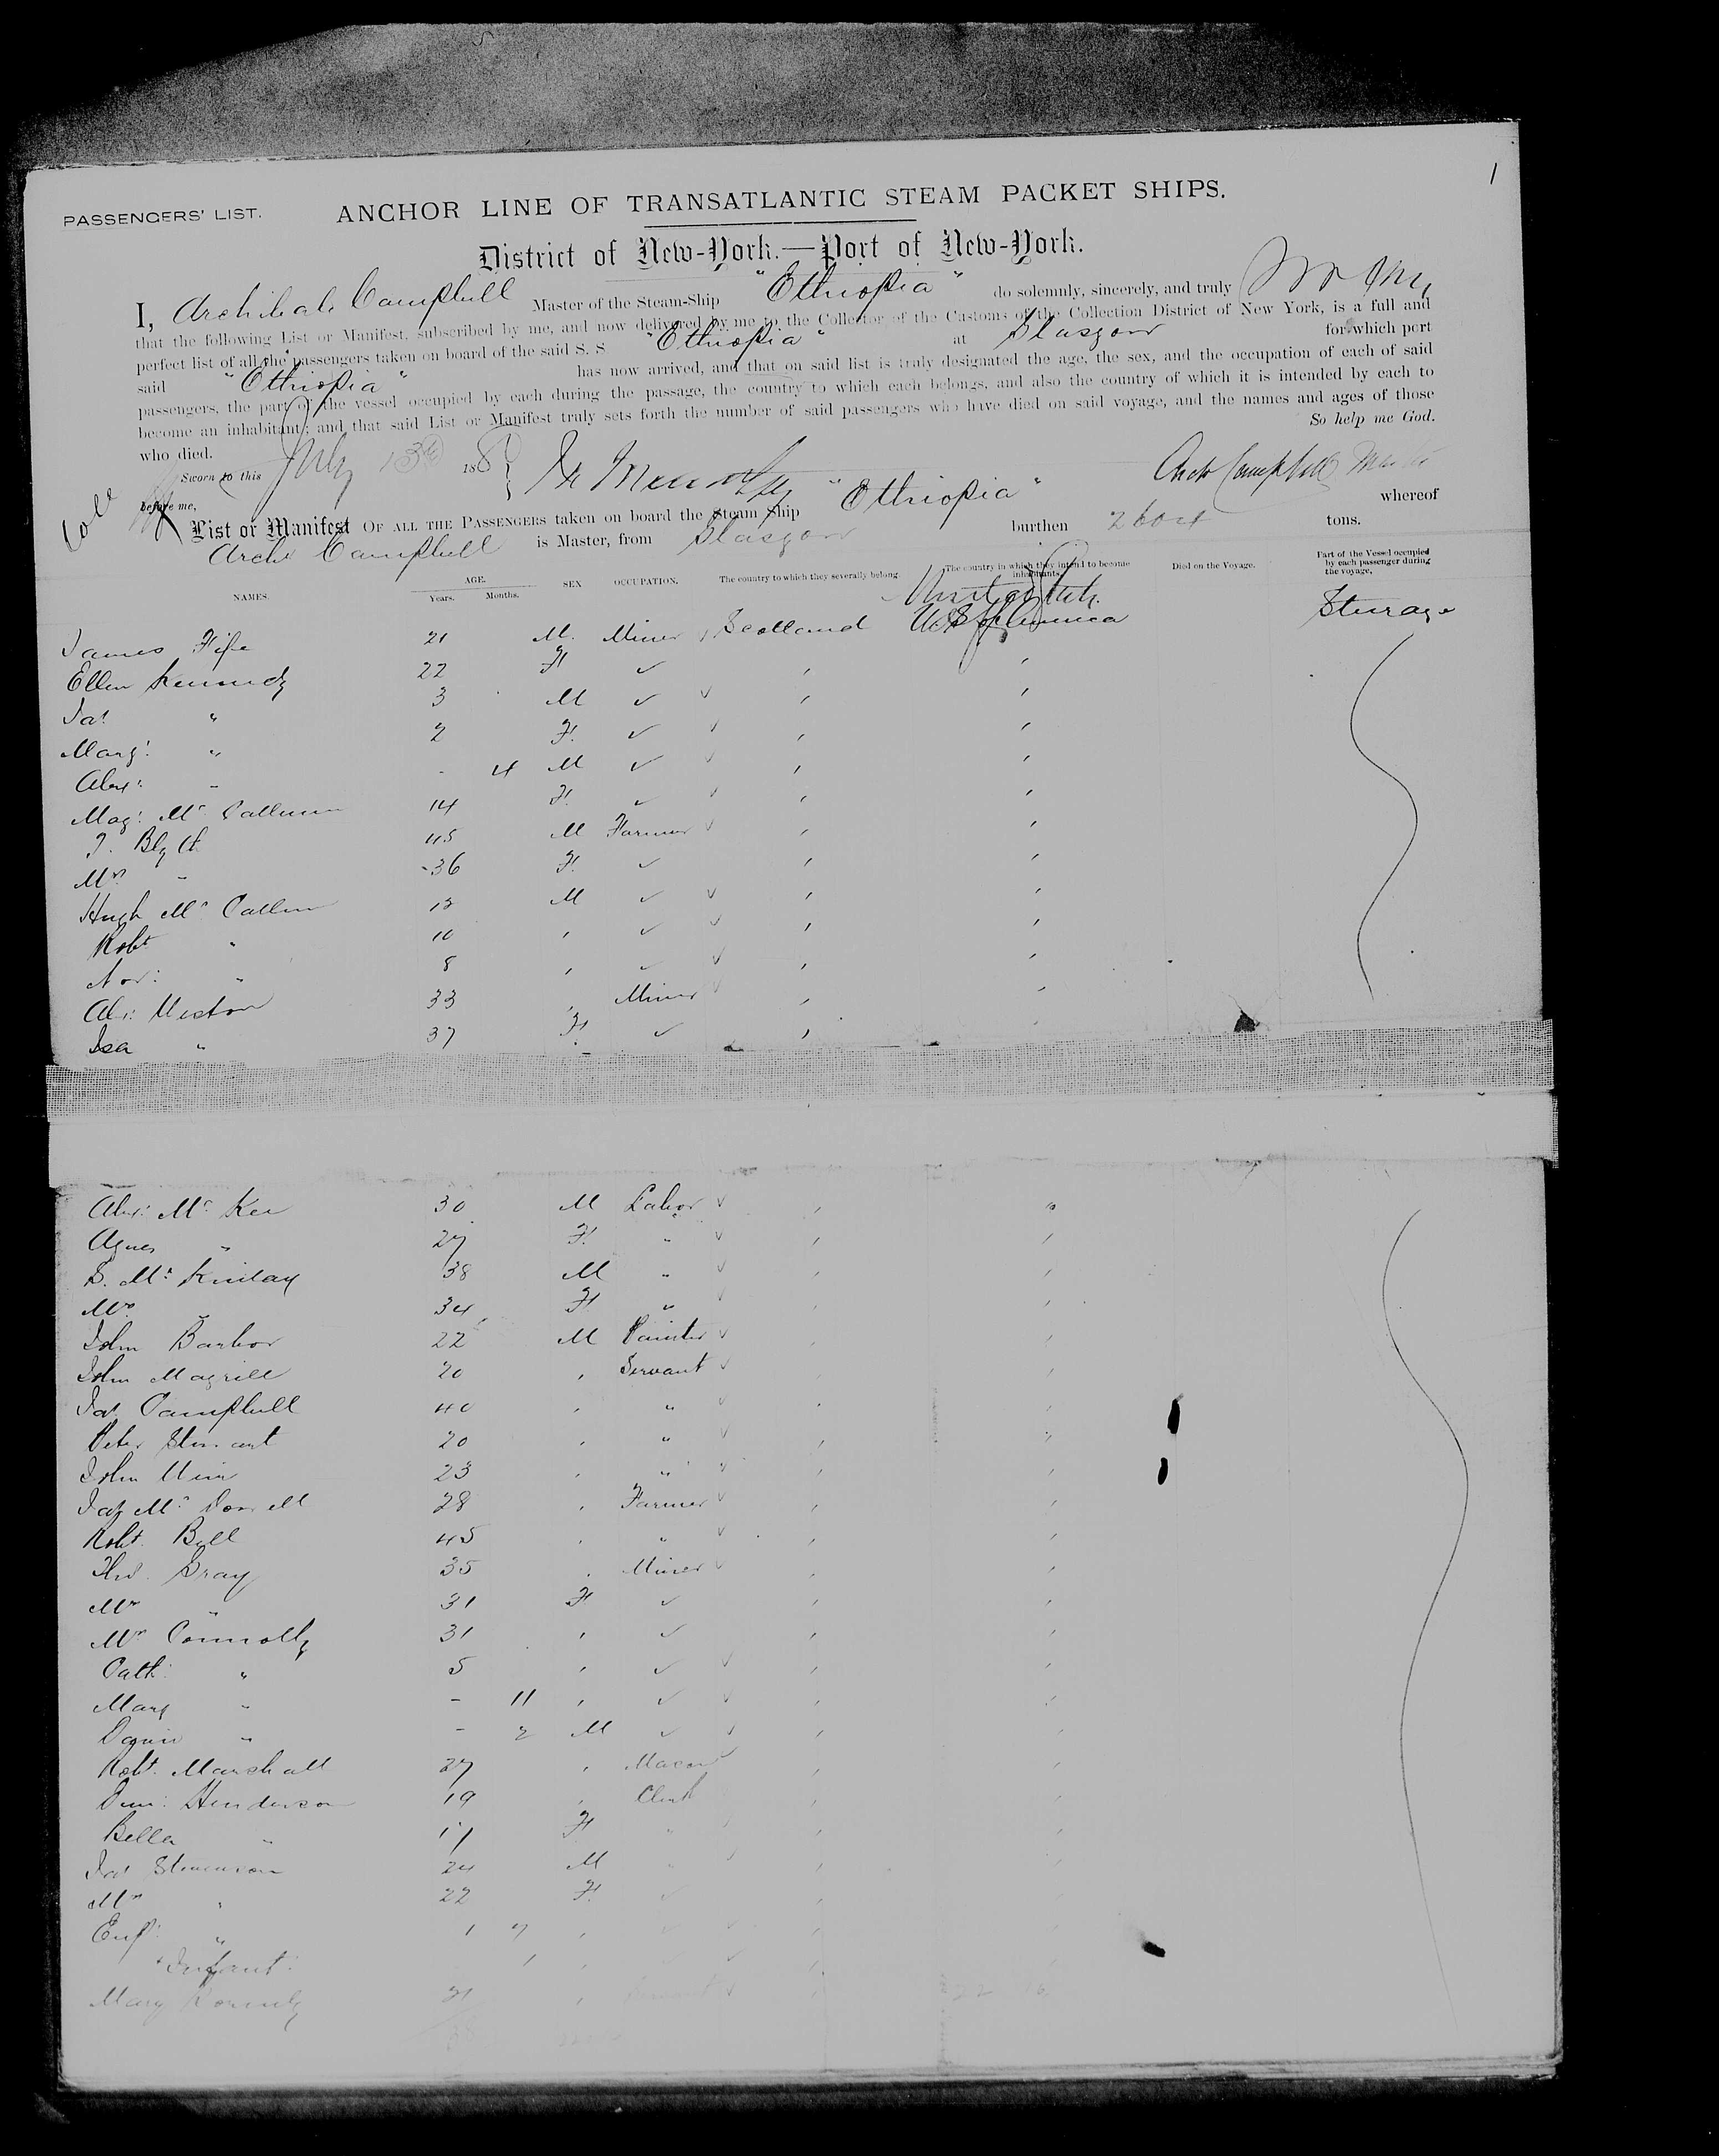 1
PASSENGERS' LIST. ANCHOR LINE OF TRANSATLANTIC STEAM PACKET SHIPS.
District of New-York.—Port of New-York.
I, Archibald Campbell Master of the Steam-Ship "Ethiopia" do solemnly, sincerely, and truly
that the following List or Manifest, subscribed by me, and now delivered by me to the Collector of the Customs of the Collection District of New York, is a full and
perfect list of all the passengers taken on board of the said S. S "Ethiopia" at Glasgow for which port
said "Ethiopia" has now arrived, and that on said list is truly designated the age, the sex, and the occupation of each of said
passengers, the part of the vessel occupied by each during the passage, the country to which each belongs, and also the country of which it is intended by each to
become an inhabitant; and that said List or Manifest truly sets forth the number of said passengers who have died on said voyage, and the names and ages of those
who died. So help me God.
Sworn to this July 13th 188
before me, Arch Campbell Master
List or Manifest OF ALL THE PASSENGERS taken on board the Steam Ship "Ethiopia" whereof
Archd Campbell is Master, from Glasgow burthen 2604 tons.
NAMES. AGE. Years. Months. SEX OCCUPATION. The country to which they severally belong. The country in which they intend to become inhabitants. Died on the Voyage. Part of the Vessel occupied by each passenger during the voyage.
James Fife 21 M. Miner Scotland U.S. of America Steerage
Ellen Kennedy 22 F ✓ ,  ,
Jas " 3 M ✓ ✓ , ,
Marg: " 2 F. ✓ ✓ , ,
Alex: " - 4 M ✓ ✓ , ,
Mag: Mc Callum 14 F. ✓ ✓ , ,
J. Blyth 45 M Farmer ✓ , ,
Mrs " 36 F. ✓ , ,
Hugh Mc Callum 12 M ✓ ✓ , ,
Robt " 10 , ✓ ✓ , ,
" 8 , ✓ ✓ , ,
33 " Miner ✓ , ,
Isa " 37 F ✓ , ,
Alex: Mc Kee 30 M Labor ✓ , "
Agnes " 27 F. " ✓ , ,
Mc Kinlay 38 M " ✓ , ,
Mrs " 34 F " ✓ , ,
John Barbor 22 M Painter ✓ , ,
John Magrill 20 , Servant ✓ , ,
Jas Campbell 40 , " ✓ , ,
Peter Stewart 20 , " ✓ , ,
John Muir 23 , " ✓ , ,
28 , Farmer ✓ , ,
Robt. Bell 45 , " ✓ , ,
Thos. Gray 35 , Miner ✓ , ,
Mrs " 31 F ✓ , ,
Mrs Connolly 31 , ✓ , ,
Cath: " 5 , ✓ ✓ , ,
Mary " - 11 , ✓ ✓ , ,
" - 2 M ✓ ✓ , ,
Robt. Marshall 27 , Mason ✓ , ,
Henderson 19 , Clerk , ,
Bella " 17 F " , ,
Jas Stevenson 24 M " ✓ , ,
Mrs " 22 F. ✓ , ,
Eup: " 1 7 , ✓ ✓ , ,
" Infant: 1 , ✓ ,
Mary 21 , ✓ ,